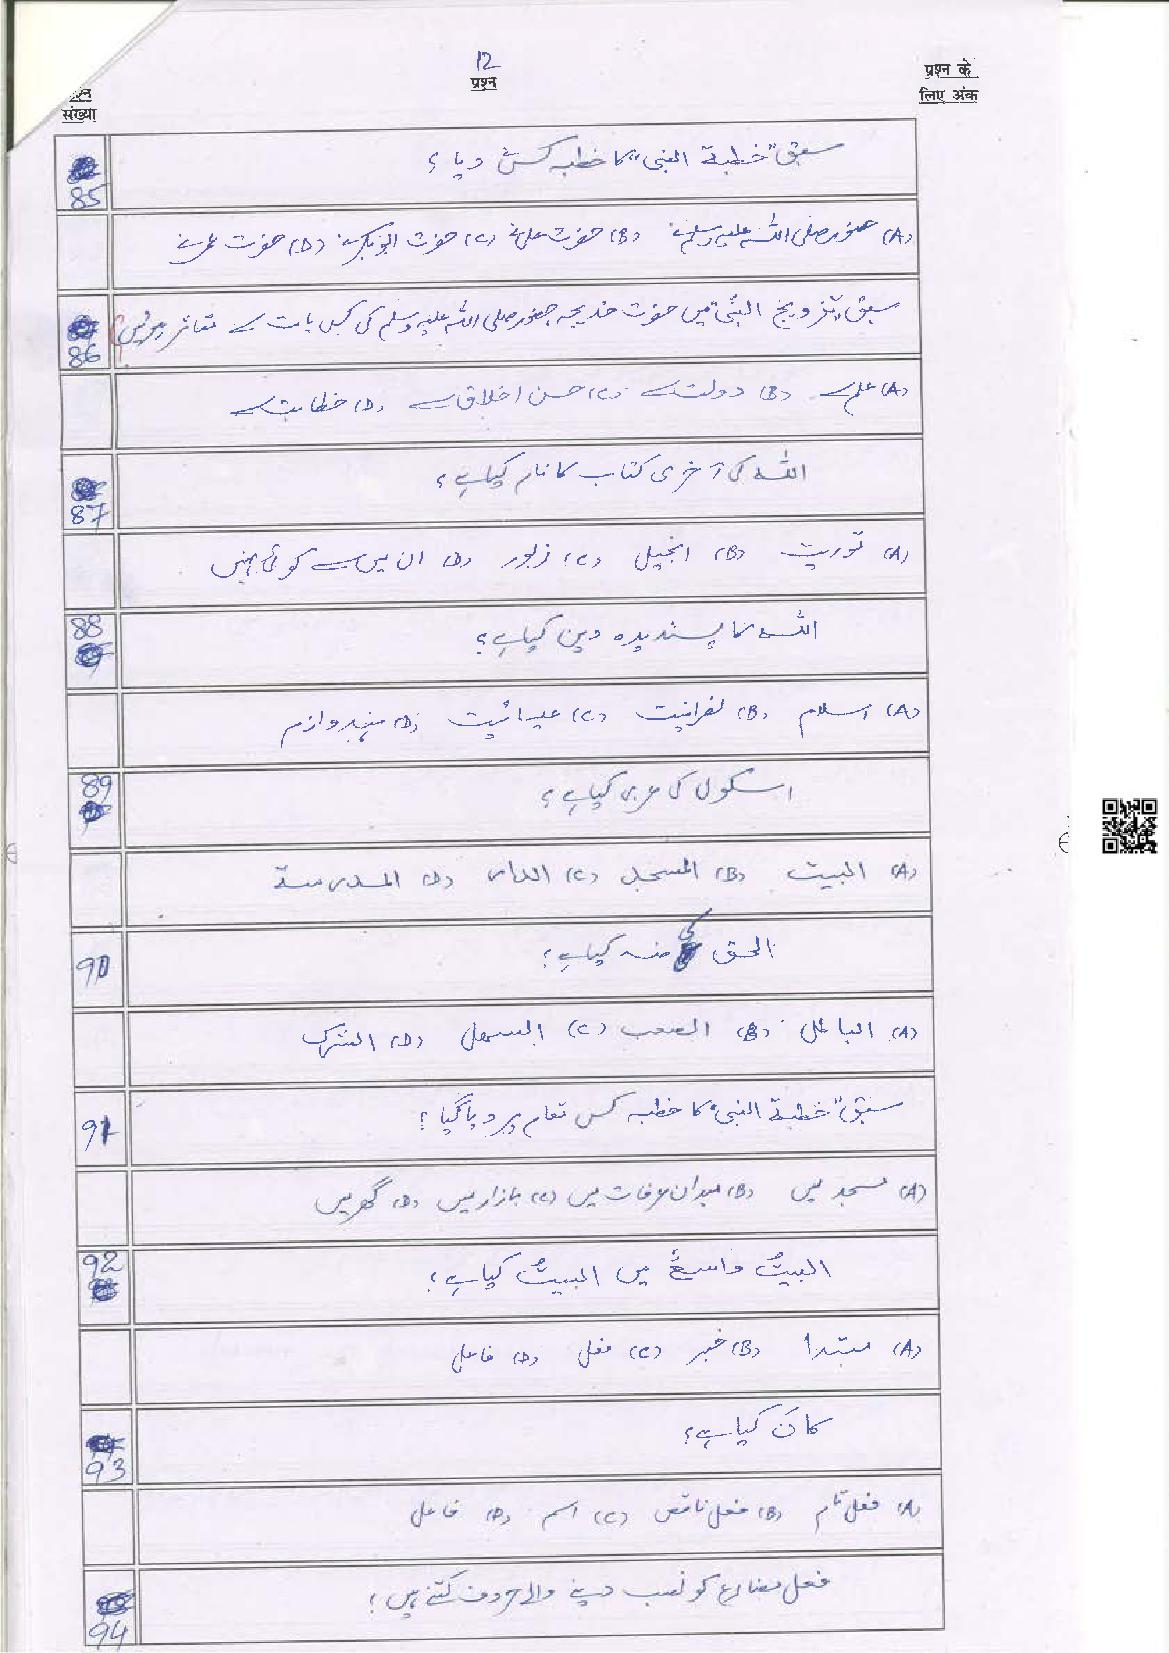 12
प्रश्न
प्रश्न के
लिए अंक
संख्या
85
سبق "خطبة النبی" کا خطبہ کس نے دیا؟
(A) حضور صلی اللہ علیہ وسلم نے (B) حضرت علی نے (C) حضرت ابوبکر نے (D) حضرت عمر نے
86
سبق تزویج النبی میں حضرت خدیجہ حضور صلی اللہ علیہ وسلم کی کس بات سے متاثر ہوئیں؟
(A) علم سے (B) دولت سے (C) حسن اخلاق سے (D) خطابت سے
87
اللہ کی آخری کتاب کا نام کیا ہے؟
(A) توریت (B) انجیل (C) زبور (D) ان میں سے کوئی نہیں
88
اللہ کا پسندیدہ دین کیا ہے؟
(A) اسلام (B) نصرانیت (C) عیسائیت (D) ہندوازم
89
اسکول کی عربی کیا ہے؟
(A) البیت (B) المسجد (C) الدار (D) المدرسة
90
الحق کی ضد کیا ہے؟
(A) الباطل (B) الصعب (C) السهل (D) الشرک
91
سبق "خطبة النبی" کا خطبہ کس مقام پر دیا گیا؟
(A) مسجد میں (B) میدان عرفات میں (C) بازار میں (D) گھر میں
92
البیتُ واسعٌ میں البیتُ کیا ہے؟
(A) مبتدا (B) خبر (C) فعل (D) فاعل
93
کانَ کیا ہے؟
(A) فعل تام (B) فعل ناقص (C) اسم (D) فاعل
94
فعل مضارع کو نصب دینے والے حروف کتنے ہیں؟